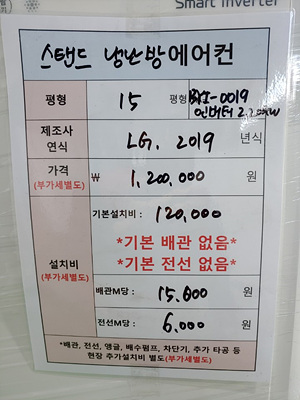 Smart Inverter
스탠드 냉난방에어컨
평형 15 평형
인버터
제조사
연식 LG. 2019 년식
가격
(부가세별도) ₩ 1,200,000 원
기본설치비 : 120,000
*기본 배관 없음*
*기본 전선 없음*
설치비
(부가세별도)
배관M당 : 15.000 원
전선M당 : 6,000 원
*배관, 전선, 앵글, 배수펌프, 차단기, 추가 타공 등
현장 추가설치비 별도(부가세별도)